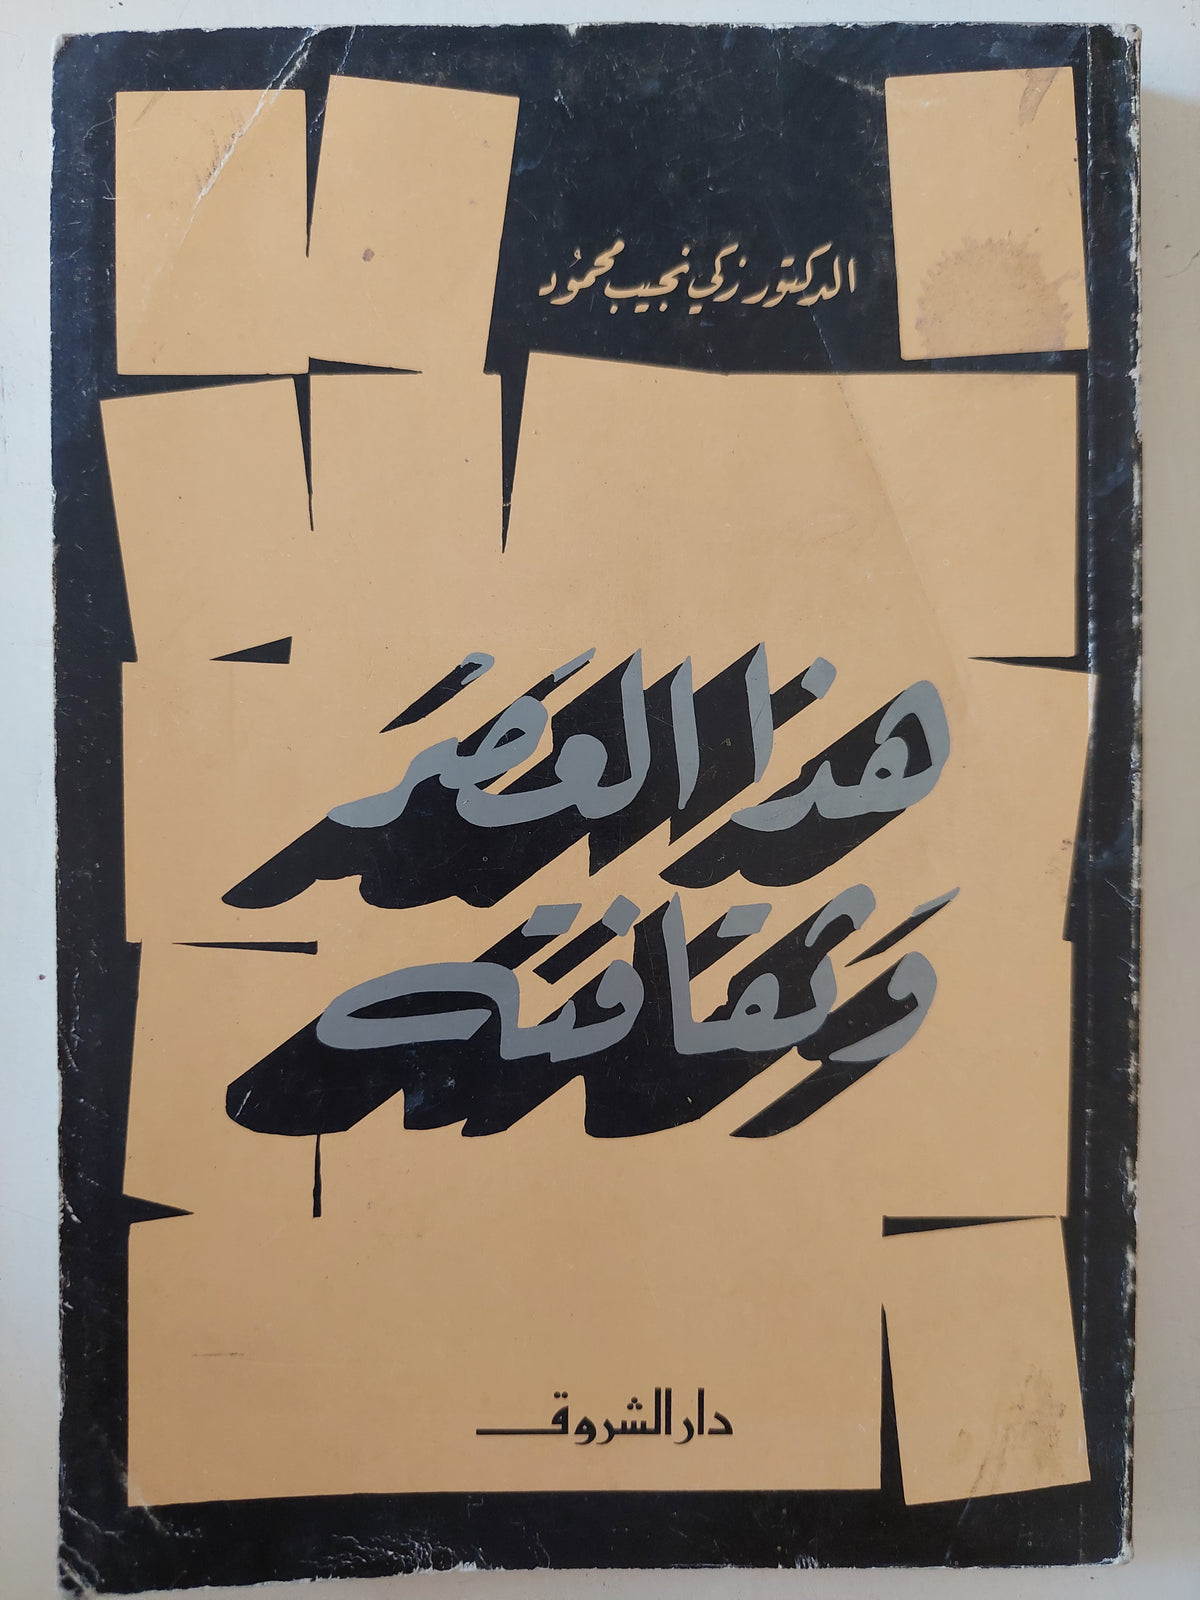 الدكتور زكي نجيب محمُود
هذا العَصْر
وَثقافته
دار الشروق